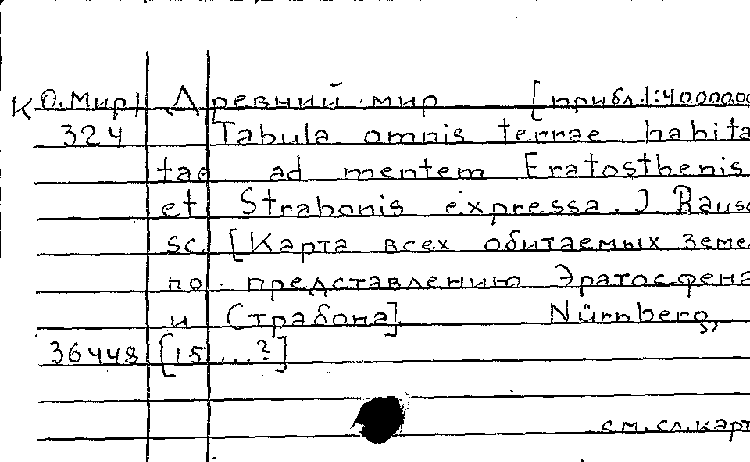 К О.Мир1 Древний мир [прибл.1:4000000
324 Tabula omnis terrae habita
tae ad mentem Eratosthenis
et Strabonis expressa. J Rausc
sc. [Карта всех обитаемых земе
по представлению Эратосфена
и Страбона] Nürnberg,
36448 [15...?]
см.сл.карт